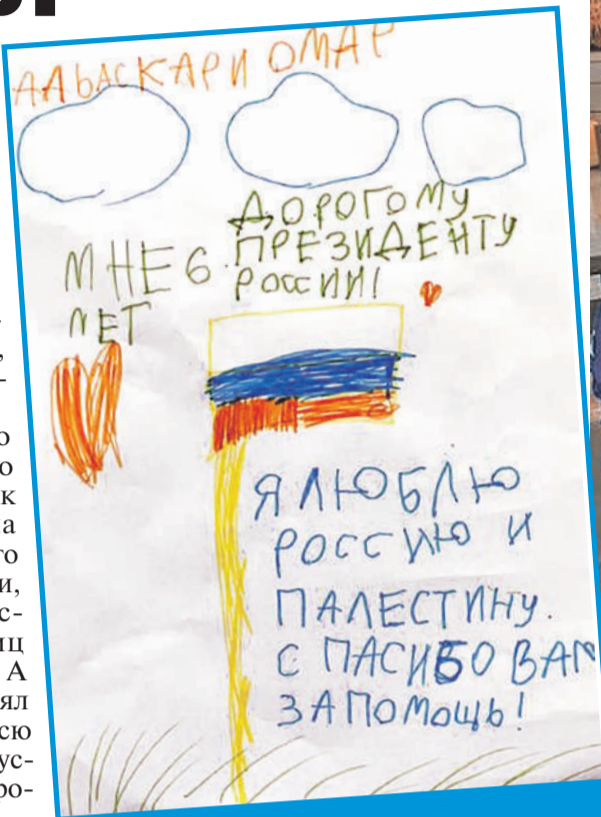 АЛЬАСКАРИ ОМАР
ДОРОГОМУ
ПРЕЗИДЕНТУ
РОССИИ!
МНЕ 6
ЛЕТ
Я ЛЮБЛЮ
РОССИЮ И
ПАЛЕСТИНУ.
С ПАСИБО ВАМ
ЗА ПОМОЩЬ!